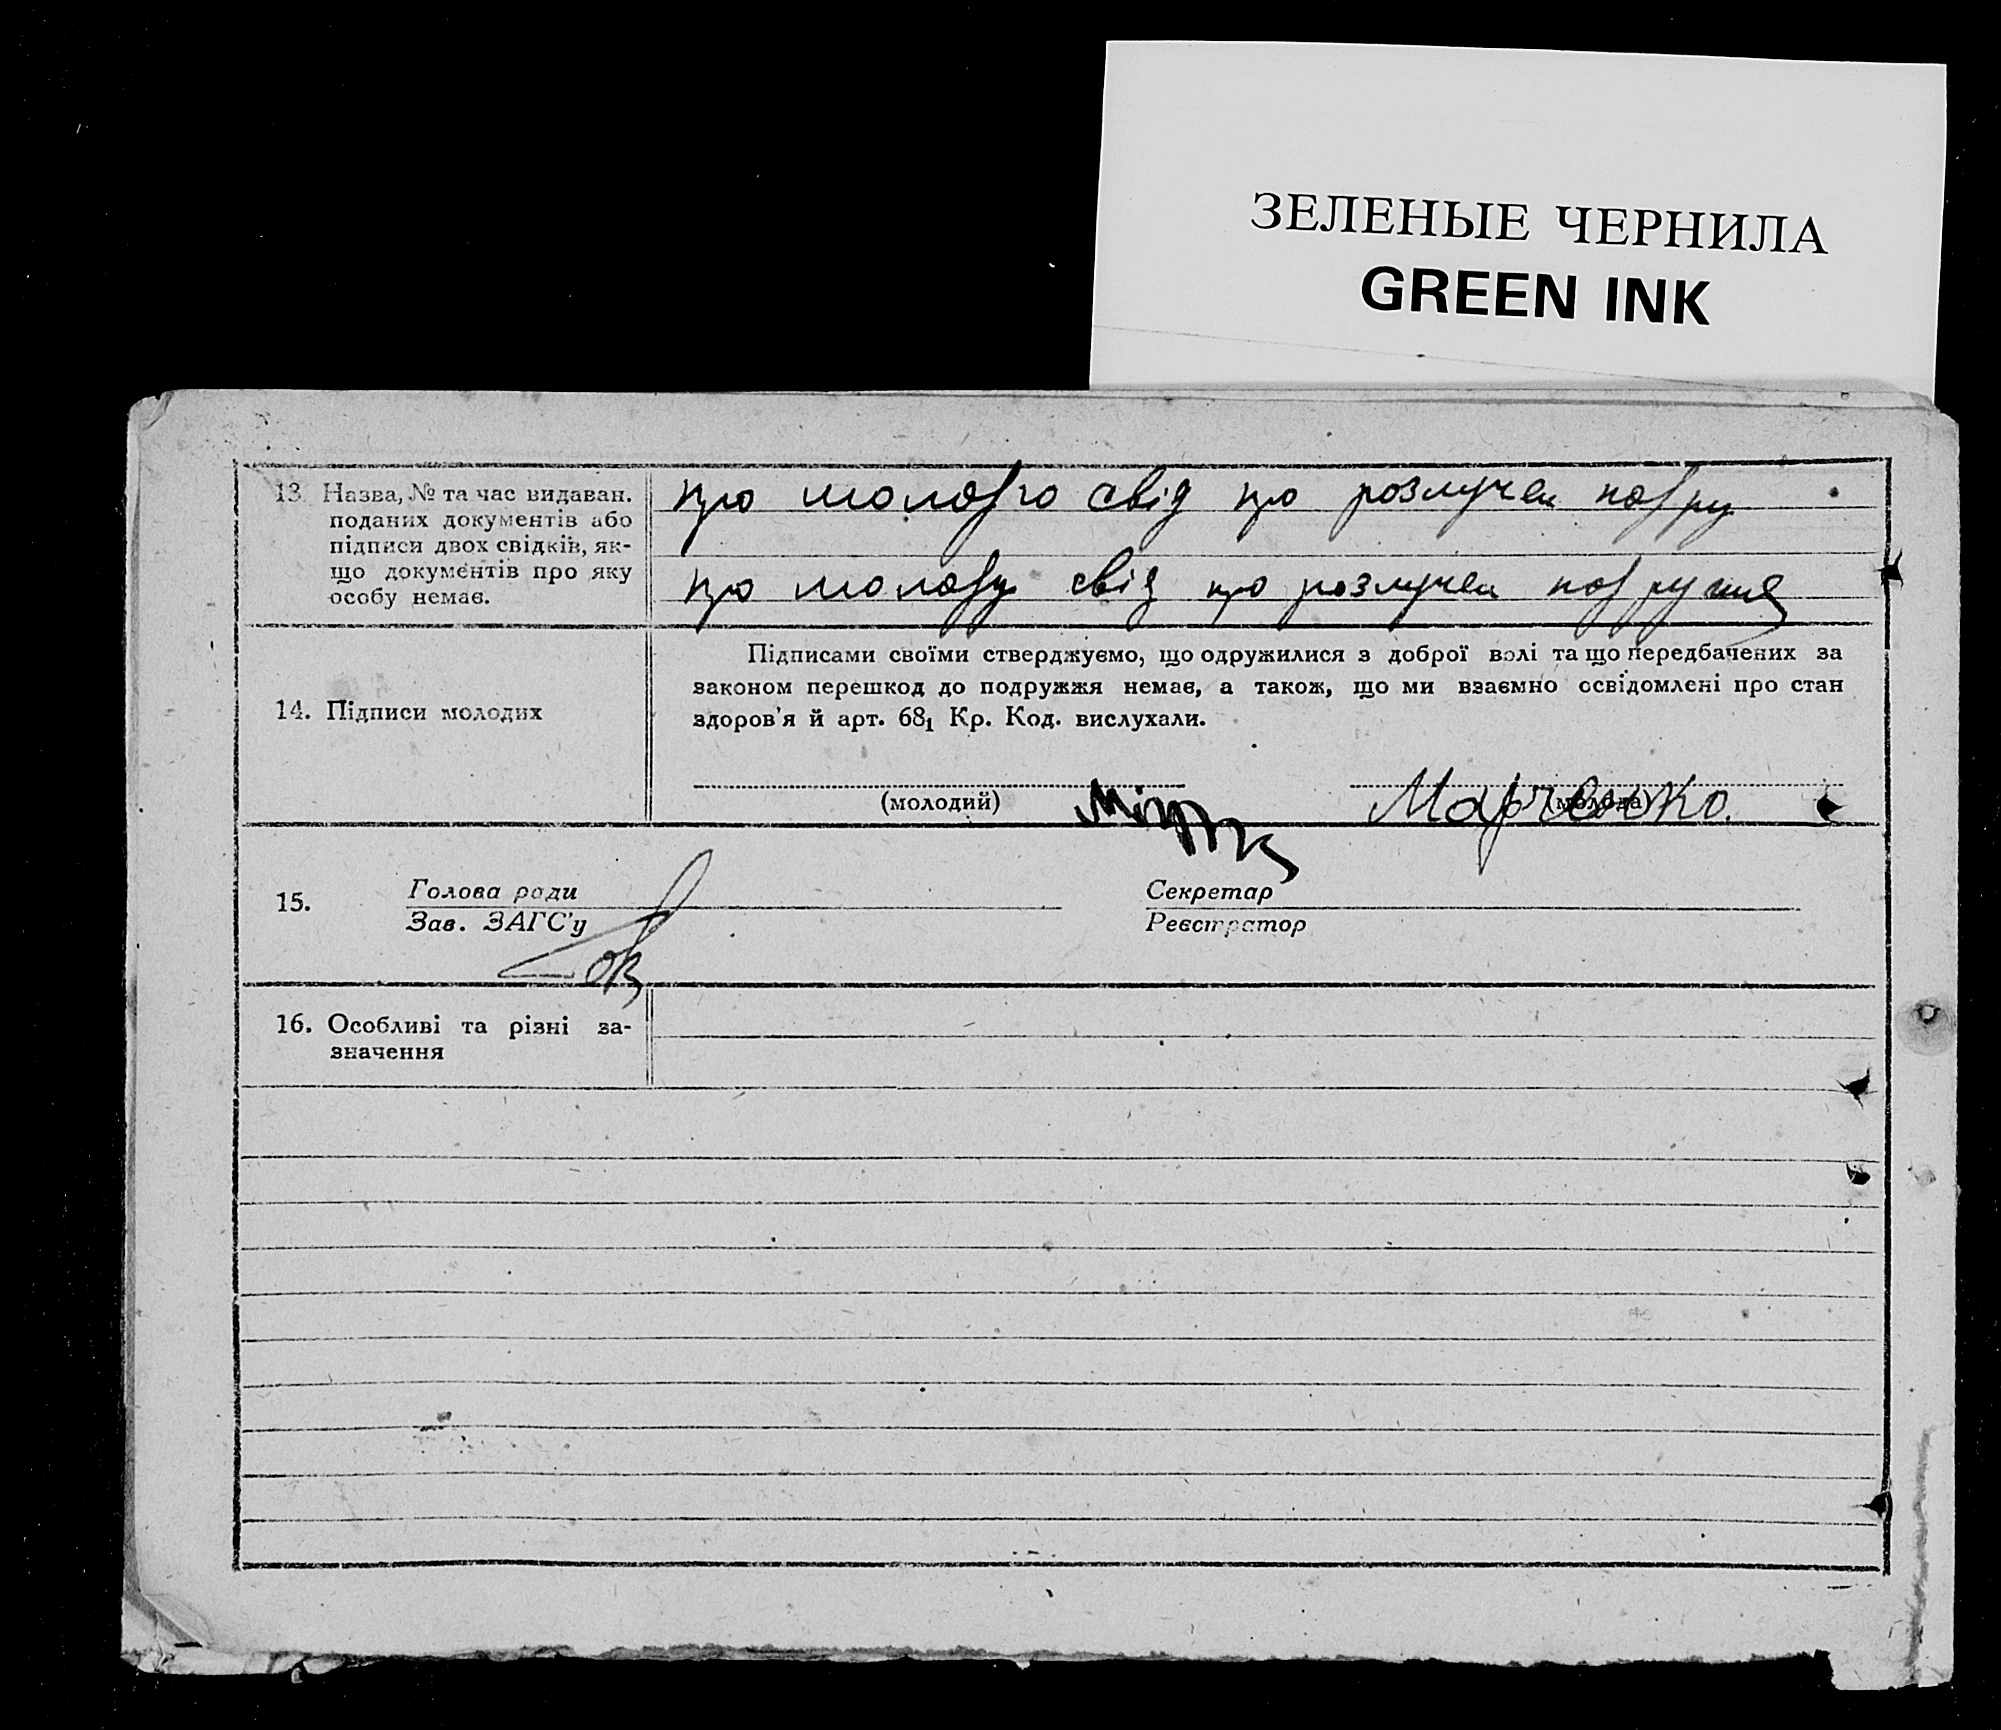 ЗЕЛЕНЫЕ ЧЕРНИЛА
GREEN INK
13. Назва, № та час видаван.
поданих документів або
підписи двох свідків, як-
що документів про яку
особу немає.
про молодого свід про розлучен подру
про молоду свід про розлучен подружжя
14. Підписи молодих
Підписами своїми стверджуємо, що одружилися з доброї волі та що передбачених за
законом перешкод до подружжя немає, а також, що ми взаємно освідомлені про стан
здоров'я й арт. 68₁ Кр. Код. вислухали.
(молодий)
(молода)
Марченко.
15.
Голова ради
Зав. ЗАГС'у
Секретар
Реєстратор
16. Особливі та різні за-
значення